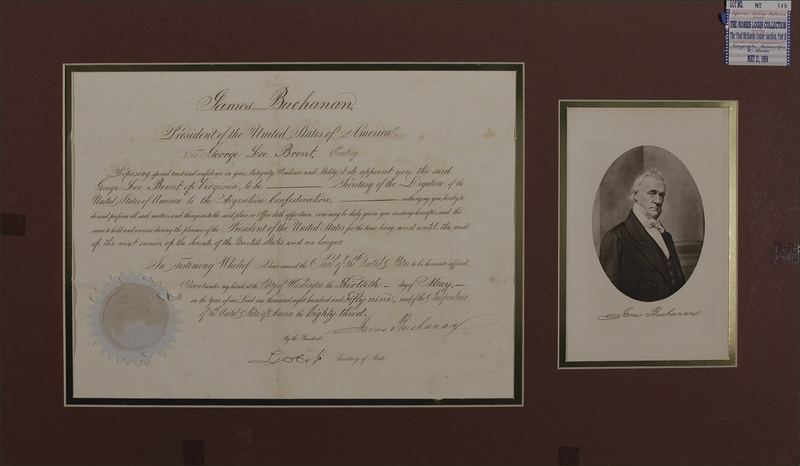 James Buchanan,
President of the United States of America,
To George Lee Brent, Greeting:
Reposing special trust and confidence in your Integrity, Prudence and Ability, I do appoint you the said
George Lee Brent, of Virginia, to be Secretary of the Legation of the
United States of America to the Argentine Confederation, authorizing you, hereby to
do and perform all such matters and things as to the said place or Office doth appertain, or as may be duly given you in charge hereafter, and the
same to hold and exercise during the pleasure of the President of the United States for the time being, and until the end
of the next session of the Senate of the United States, and no longer.
In Testimony Whereof, I have caused the Seal of the United States to be hereunto affixed.
Given under my hand at the City of Washington the Thirtieth day of May,
in the Year of our Lord one thousand eight hundred and Fifty nine, and of the Independence
of the United States of America the Eighty third.
James Buchanan
By the President,
Lew Cass Secretary of State
James Buchanan
LOT NO. No 146
THE MORRIS LOGIN COLLECTION
The Paul Richards Estate Auction, Part II
MAY 21, 1994